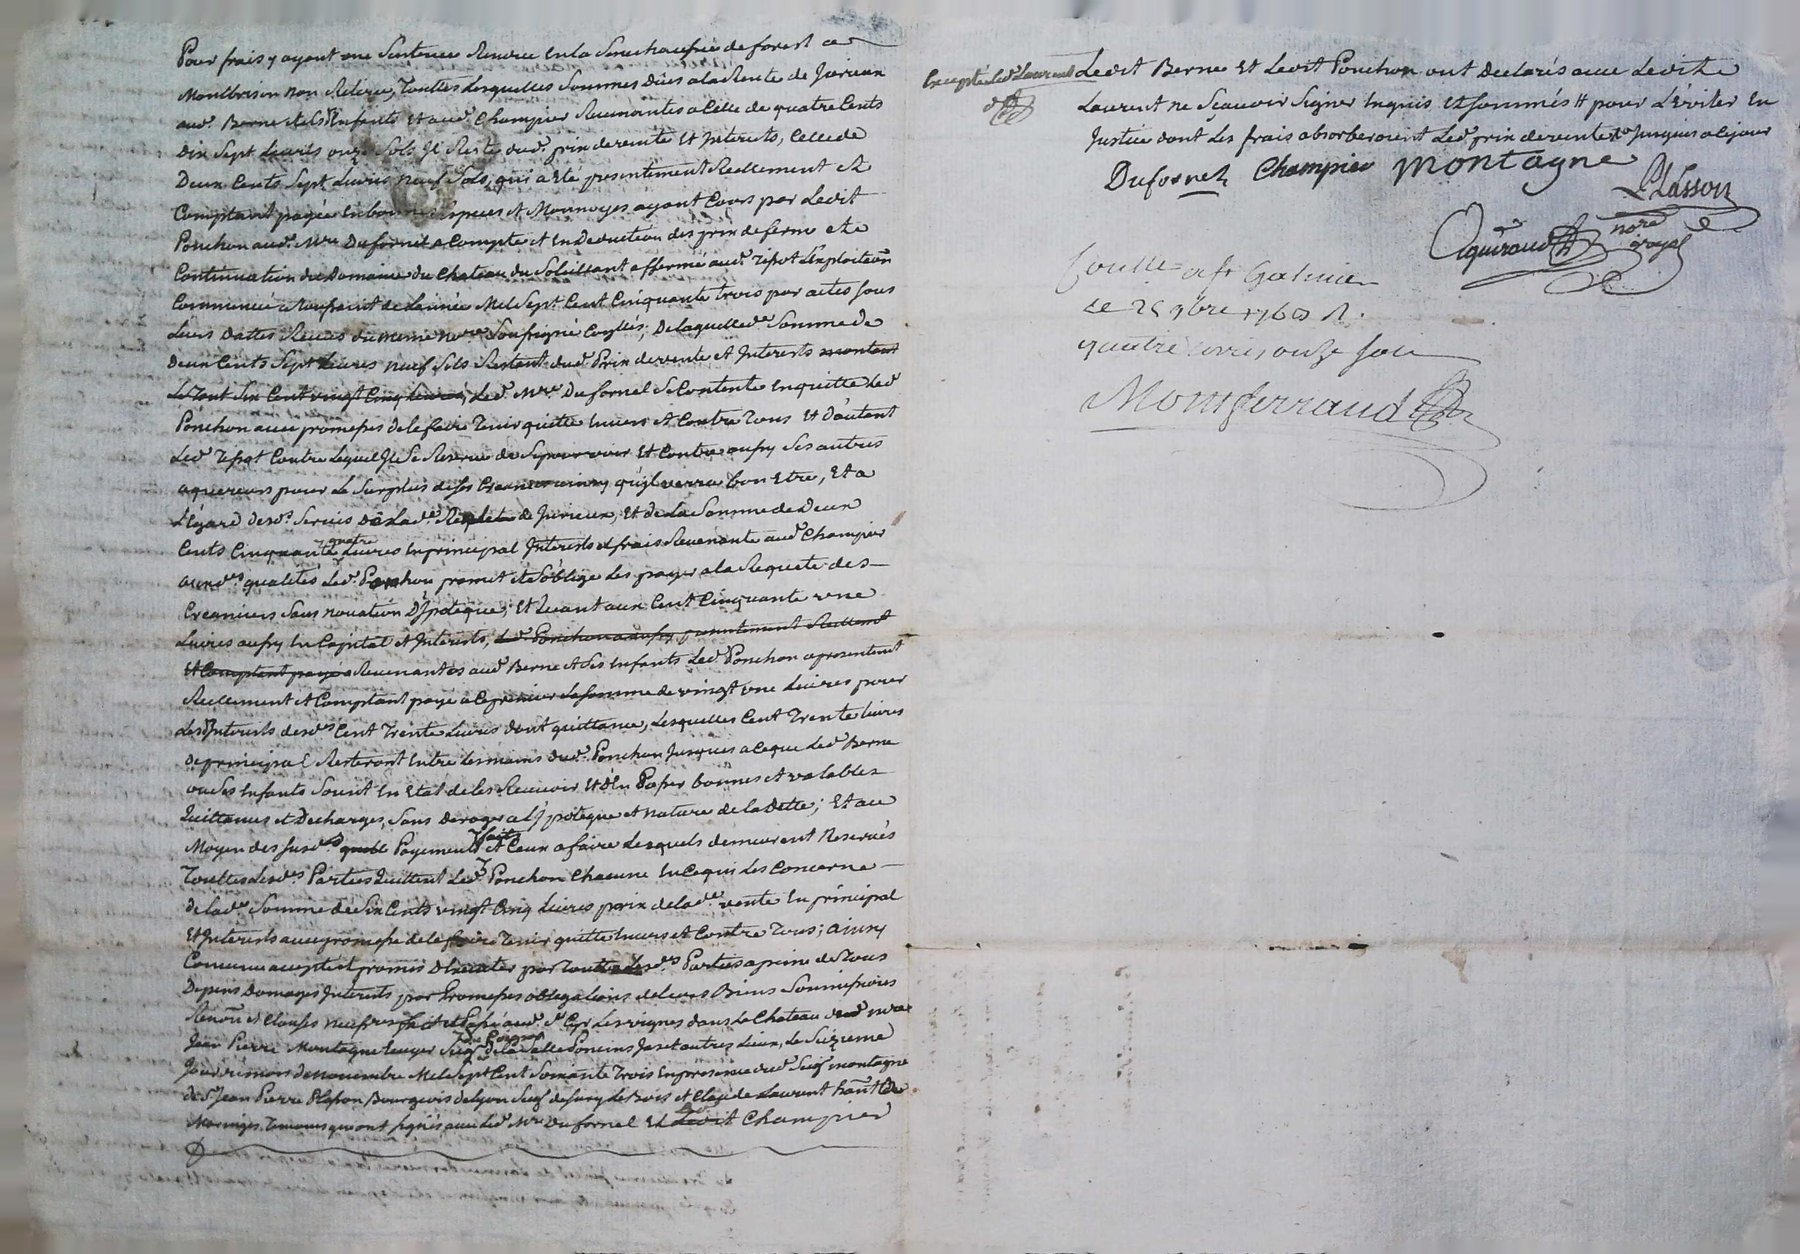 Pour frais y ayant une Sentence Rendue en la Senechaussée de forest a
Montbrison non Retirée, Touttes Lesquelles Sommes Dües a la Rente de Jurieux
aud. Berne et ses Enfants et aud. Champier Revenantes a Celle de quatre Cents
Dix Sept Livres onze Sols Il Reste dud. prix de vente et Interets, Celle de
Deux Cents Sept Livres neuf Sols, qui a Eté presentement Reellement et
Comptant payée en bonnes Especes et Monnoyes ayant Cours par Ledit
Ponchon aud. Mre Dufornel a Compte et en Deduction des prix de ferme et
Continuation du Domaine du Chateau du Soleillant affermé aud.
Commencée de l'année Mil Sept Cent Cinquante trois par actes sous
Leurs Dattes Reçues du meme nore Soussigné Conllés; De laquelle de Somme de
Deux Cents Sept Livres neuf Sols Restant dud. Prix de vente et Interets montant
Le Tout Six Cent vingt Cinq Livres, Led. Mre Dufornel Se Contente en quitte Led.
Ponchon avec promesses de le faire Tenir quitte envers et Contre Tous Et d'autant
Led. Contre Lequel Il Se Reserve de Se pourvoir Et Contre aussy Ses autres
aquereurs pour Le Surplus de ses Creances ainsy qu'il verra bon Etre, Et a
L'Egard desd. Servis De Lade Rente de Jurieux, Et de La Somme de Deux
Cents Cinquante quatre Livres en principal Interets et frais Revenante aud. Champier
auxd. qualités Led. Ponchon promet et S'oblige Les payer a la Requete des
Creanciers Sans novation D'Ipoteque; Et Quant aux Cent Cinquante une
Livres aussy en Capital et Interets, Led. Ponchon a aussy presentement Reellement
Et Comptant payé Revenantes aud. Berne et Ses Enfants Led. Ponchon a presentement
Reellement et Comptant payé a Ce premier La Somme de vingt une Livres pour
Les Interets desd. Cent Trente Livres dont quittance, Lesquelles Cent Trente Livres
de principal Resteront Entre Les mains dud. Ponchon Jusques a Ce que Led. Berne
ou Ses Enfants Soient en Etat de les Recevoir Et d'en Passer bonnes et valables
Quittances et Decharges, Sans Deroger a L'Ipoteque et nature de la Dette; Et au
Moyen des susd. Payements faits Et Ceux a faire Lesquels demeurent Reservés
Touttes Lesd. Parties Quittent Led. Ponchon Chacune en Ce qui Les Concerne
de lade Somme de Six Cents vingt Cinq Livres prix de lade vente En principal
Et Interets avec promesse de le faire Tenir quitte Envers et Contre Tous; ainsy
Convenu accepté et promis D'Executer par Touttes Lesd. Parties a peine de Tous
Depens Domages Interets, par Promesses obligations de leurs Biens Soumissions
Renon et Clauses fait et Passé aud. St Cyr Les vignes dans Le Chateau dud mre
Jean Pierre Montagne Ecuyer Seigr de La Salle Poncins Jas et autres Lieux, Le Seizieme
Jour du mois de novembre Mil Sept Cent Soixante Trois En presence dud. Seigr montagne
de Sr Jean Pierre Plasson Bourgeois de Lyon Seigr de Sury Le Bois et Claude Laurent hant De
Temoins qui ont Signés avec Led. Mre Dufornel Et Ledit Champier
Excepté Led. Laurent
Ledit Berne Et Ledit Ponchon ont Declarés avec Ledit
Laurent ne Scavoir Signer Enquis Et Sommés pour L'Eviter En
Justice dont Les frais absorberoient Led. prix de vente Jusques a Ce jour
Dufornel Champier Montagne
Plasson
Aguiraud
nore royal
Conllé a St Galmier
Le 25 9bre 1763 R.
quatre Livres onze Sols
Montferrand